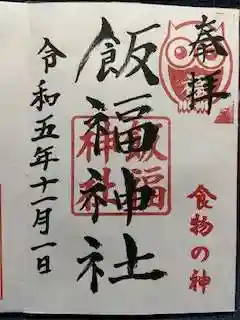 奉拝
飯福神社
飯福神社
食物の神
令和五年十一月一日